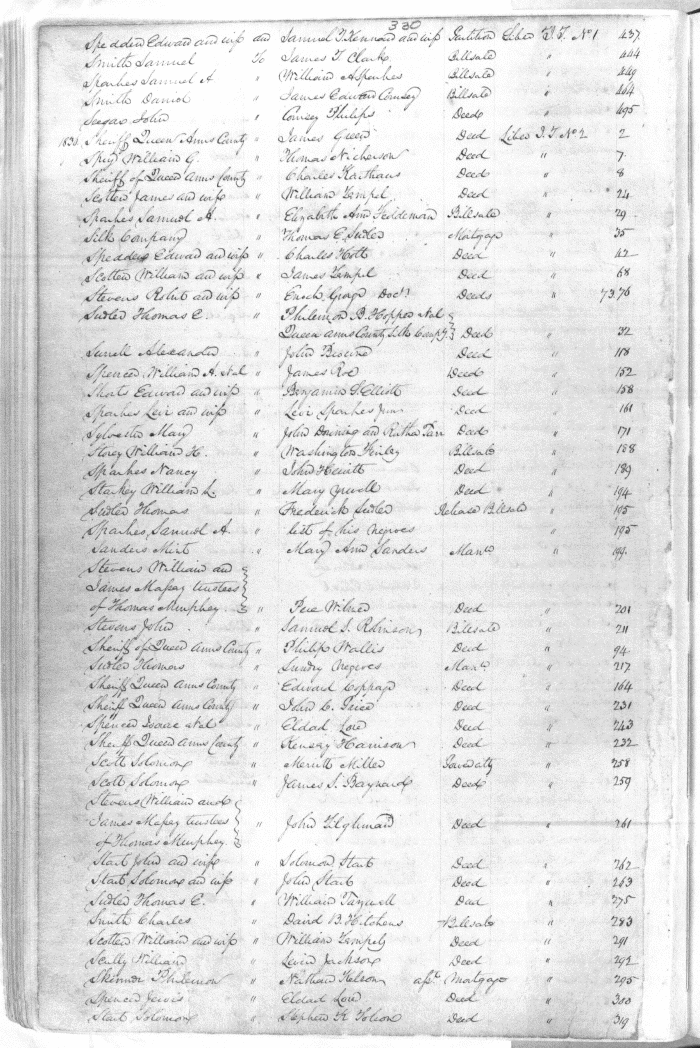 330
Spedden Edward and wife and Samuel T. Kennard and wife Partition Liber J.T. No 1 437
Smith Samuel To James T Clark Billsale " 444
Sparkes Samuel A " William A Sparkes Billsale " 449
Smith Daniel " James Edward Comsey Billsale " 464
Seegar John " Comsey Philips Deed " 495
Sheriff Queen Anns County " James Green Deed Liber J.T. No 2 2
Spry William G. " Thomas Nicherson Deed " 7
Sheriff of Queen Anns County " Charles Karthaus Deed " 8
Scotten James and wife " William Templ Deed " 24
Sparkes Samuel A. " Elizabeth Ann Feddeman Billsale " 29
Silk Company " Thomas E. Sudler Mortgage " 35
Spedden Edward and wife " Charles Hobb Deed " 42
Scotten William and wife " James Templ Deed " 68
Stevens Robert and wife " Enoch George Doct. Deeds " 73.76
Sudler Thomas E. " Philemon B. Hopper & al
Queen Anns County Silk Compy. Deed " 32
Alexander " John Browne Deed " 118
Spencer William A. & al " James Roe Deed " 152
Shorts Edward and wife " Benjamin G. Elliott Deed " 158
Sparkes Levi and wife " Levi Sparkes Junr Deed " 161
Sylvester Mary " John and Deed " 171
Storey William H. " Washington Finley Billsale " 188
Sparkes Nancy " John Hewitt Deed " 189
Starkey William L. " Mary Deed " 194
Sudler Thomas " Frederick Sudler Release Billsale " 195
Sparkes Samuel A " list of his negroes " 195
Sanders Mint " Mary Ann Sanders Mann " 199
Stevens William and
James Massey trustees
of Thomas Murphey " Pere Wilmer Deed " 201
Stevens John " Samuel S. Robinson Billsale " 211
Sheriff of Queen Anns County " Philip Wallis Deed " 94
Sudler Thomas " Sundry Negroes Mann " 217
Sheriff Queen Anns County " Edward Coppage Deed " 164
Sheriff Queen Anns County " John C. Price Deed " 231
Spencer Isaac & al " Eldad Low Deed " 243
Sheriff Queen Anns County " Kensey Harrison Deed " 232
Scott Solomon " Merritt Miller " 258
Scott Solomon " James S. Baynard Deed " 259
Stevens William and
James Massey trustees
of Thomas Murphey " John Tilghman Deed " 261
Start John and wife " Solomon Start Deed " 262
Start Solomon and wife " John Start Deed " 263
Sudler Thomas E. " William Deed " 275
Smith Charles " David B. Hitchens Billsale " 283
Scotten William and wife " William Templ Deed " 291
Scully William " Levin Jackson Deed " 292
Skinner Philemon " Nathan Nelson asst. Mortgage " 295
Spencer Jervis " Eldad Low Deed " 300
Start Solomon " Stephen K. Tolson Deed " 319